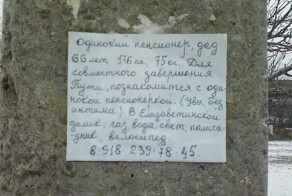 Одинокий пенсионер, дед
66 лет, 176 см, 75 кг. Для
совместного завершения
Пути, познакомится с оди-
нокой пенсионеркой. (Увы, без
интима) В Елизаветинской
домик: газ, вода, свет, палиса-
дник, велосипед.
8-918 239-78-45.